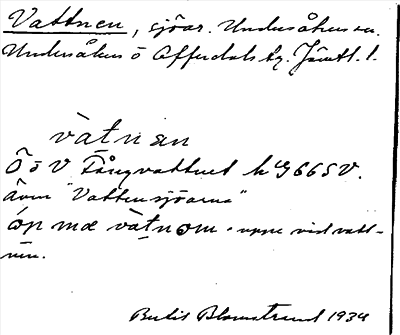 Vattnen, sjöar. Undersåkers sn.
Undersåkers o Offerdals tg. Jämtl. l.
vàtnen
Ö o V Fångvattnet h 466 S V.
även "Vattensjöarna"
óp mæ vàtnom. uppe vid vatt-
nen.
Bertil Blomstrand 1934